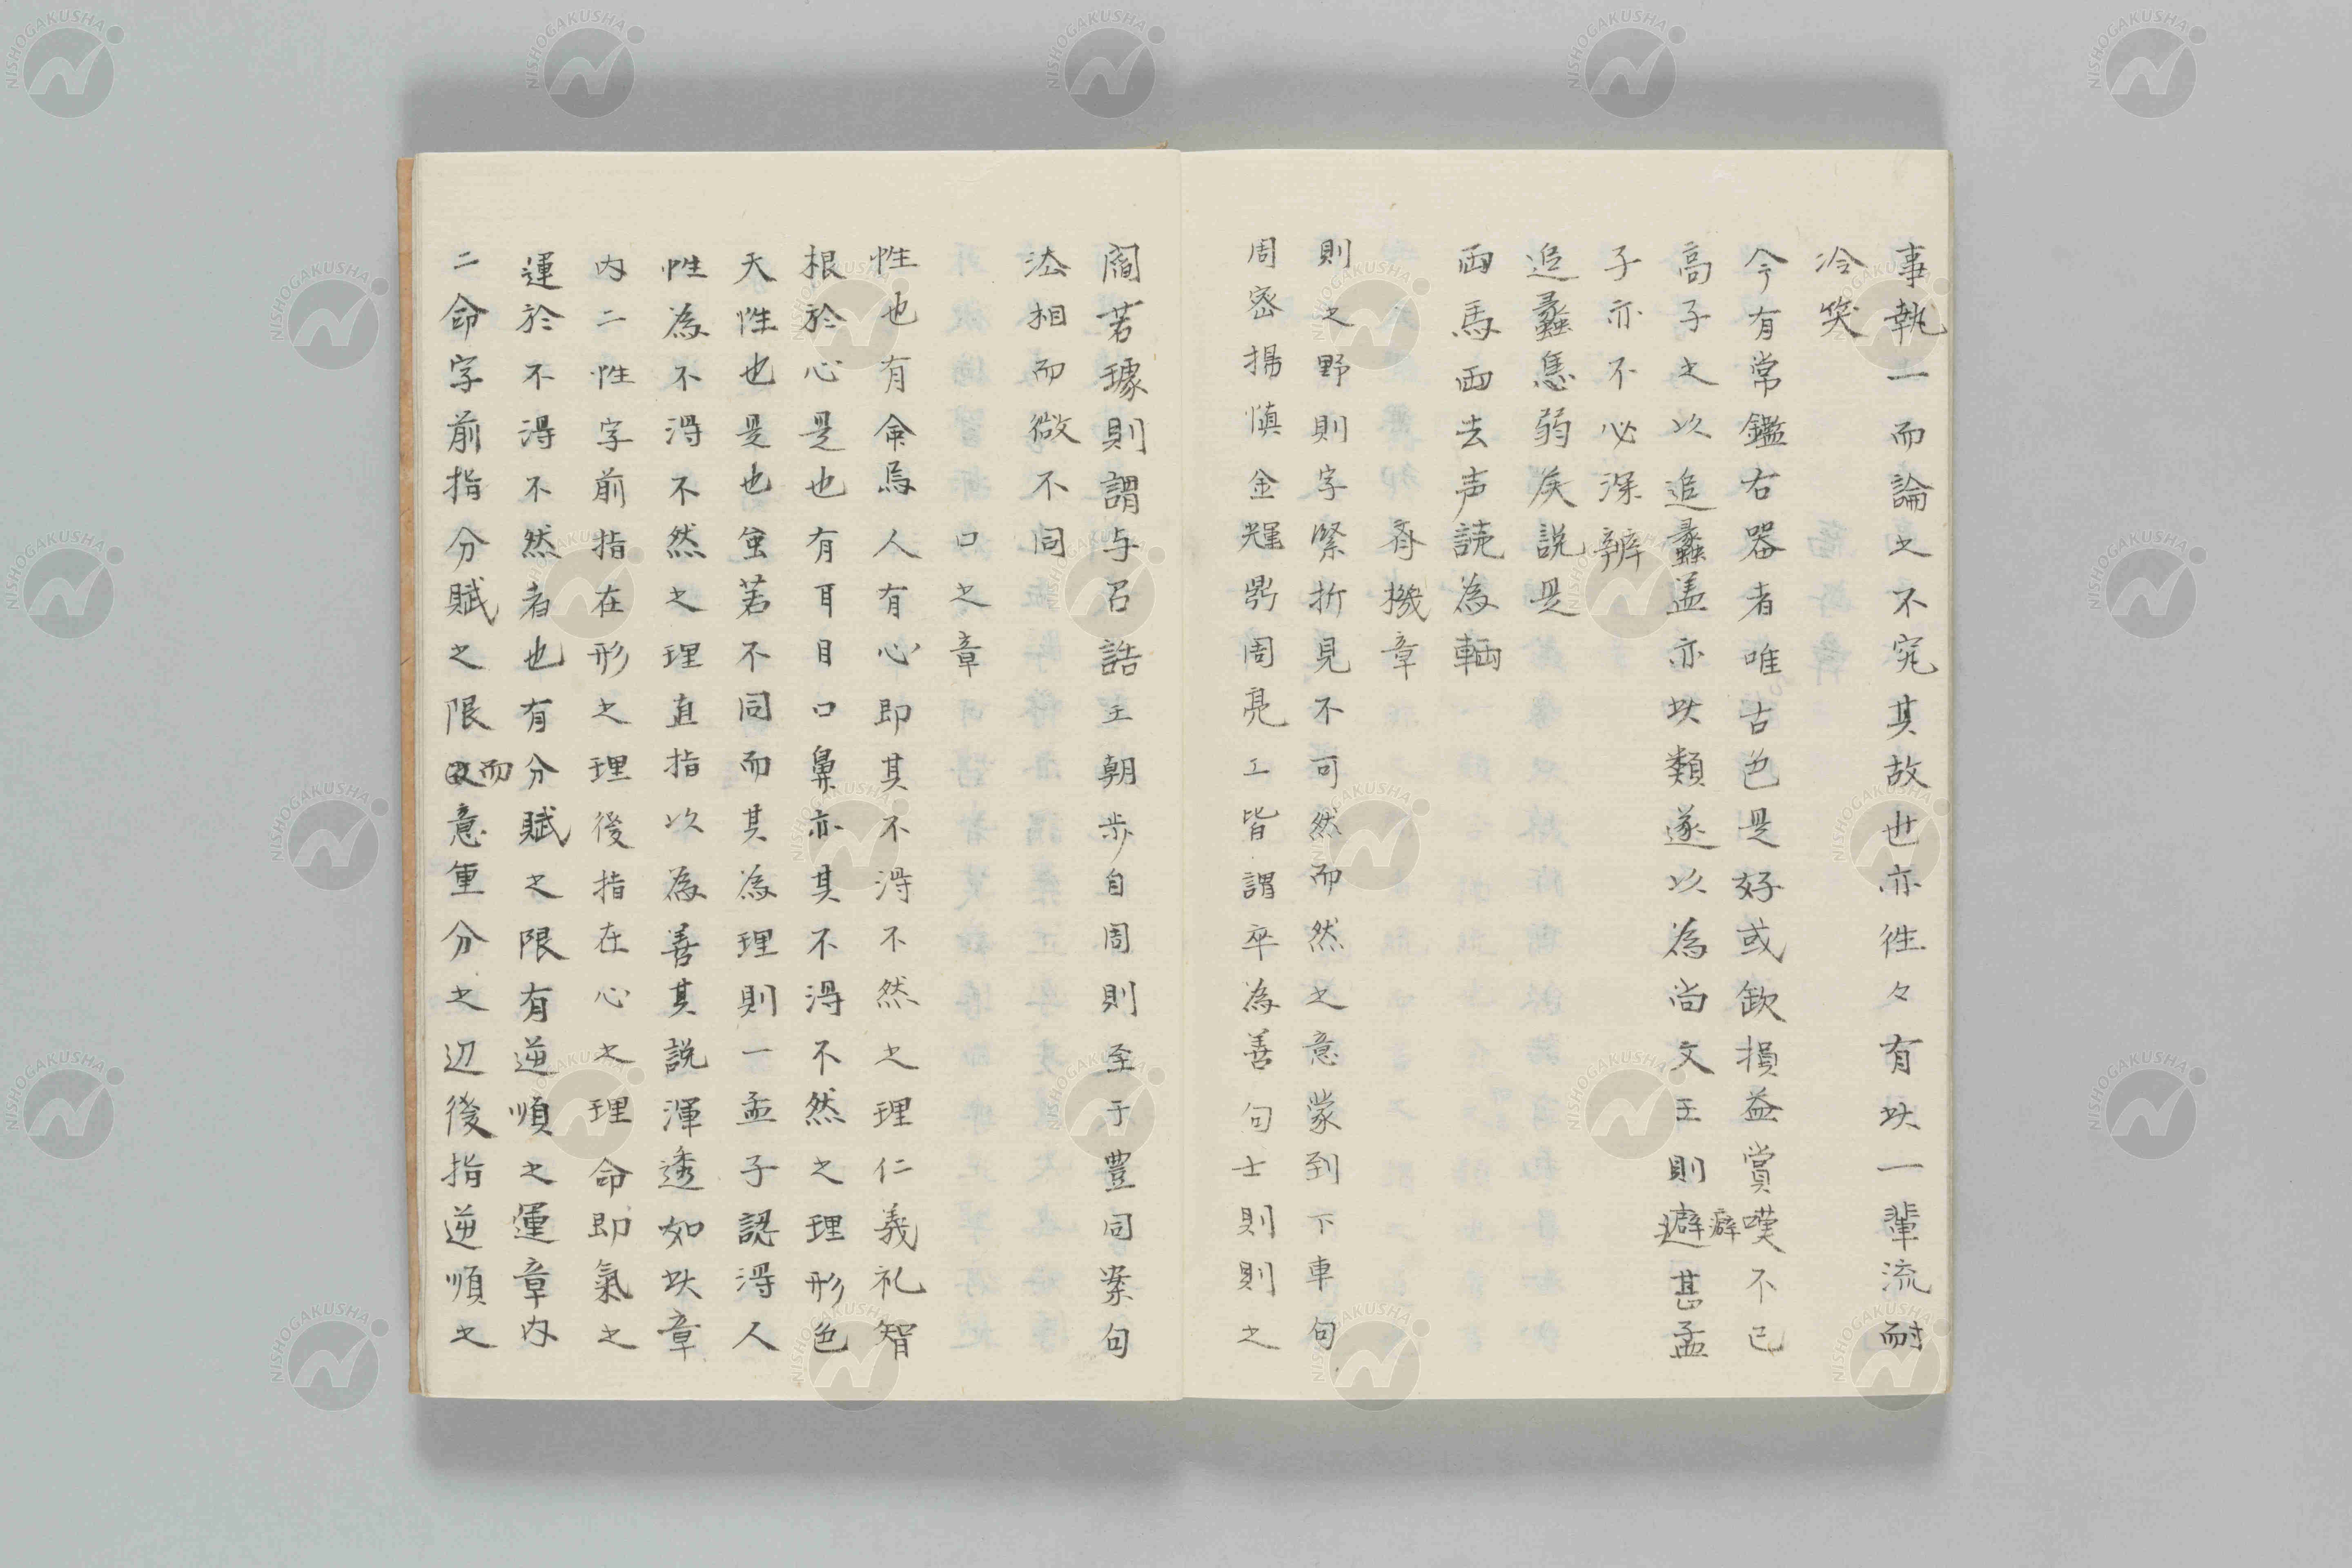 事執一而論之不究其故也亦往々有此一輩流耐
冷笑
今有常鑑右器者唯古色是好或欽損益賞嘆不已
高子之以追蠡盖亦此類遂以為尚文王則避癖甚孟
子亦不必深辨
追蠡恁弱矣説是
両馬両去声読為輌
斉機章
則之野則字緊折見不可然而然之意蒙到下車句
周密揚慎金輝鼎周亮工皆謂卒為善句士則則之
閻若璩則謂与召誥王朝歩自周則至于豊同案句
法相而微不同
口之章
性也有命焉人有心即其不得不然之理仁義礼智
根於心是也有耳目口鼻亦其不得不然之理形色
天性也是也虽若不同而其為理則一孟子認得人
性為不得不然之理直指以為善其説渾透如此章
内二性字前指在形之理後指在心之理命即氣之
運於不得不然者也有分賦之限有逆順之運章内
二命字前指分賦之限而意重分之辺後指逆順之
NISHOGAKUSHA